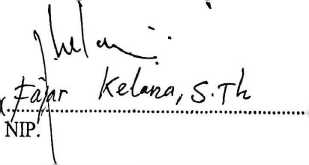 (Fajar Kelana, S.Th
NIP.